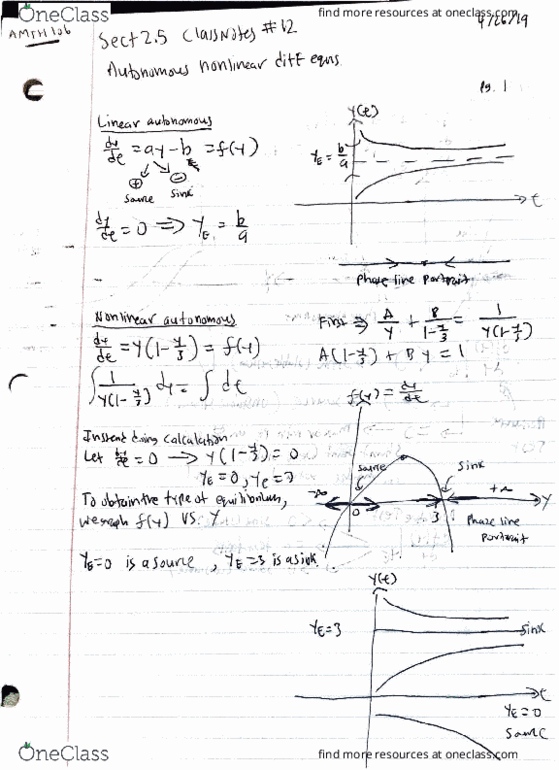 OneClass
find more resources at oneclass.com
AMTH 106
Sect 2.5 ClassNotes #12
4/26/19
Autonomous nonlinear diff eqns.
Pg. 1
Linear autonomous
dy/dt = ay - b = f(y)
⊕ ⊖
source sink
dy/dt = 0 ⟹ Y_E = b/a
Y(t)
Y_E = b/a
t
Phase line Portrait
Nonlinear autonomous
dy/dt = Y(1 - y/3) = f(y)
∫ 1/(Y(1 - y/3)) dy = ∫ dt
First ⟹ A/Y + B/(1 - y/3) = 1/(Y(1 - y/3))
A(1 - y/3) + B y = 1
Instead doing calculation
Let dy/dt = 0 → Y(1 - y/3) = 0
Y_E = 0, Y_E = 3
To obtain the type of equilibrium,
we graph f(y) vs. Y
Y_E = 0 is a source, Y_E = 3 is a sink.
f(y) = dy/dt
source
sink
-∞
+∞
0
3
Y
Phase line
Portrait
Y(t)
Y_E = 3
sink
t
Y_E = 0
source
OneClass
find more resources at oneclass.com